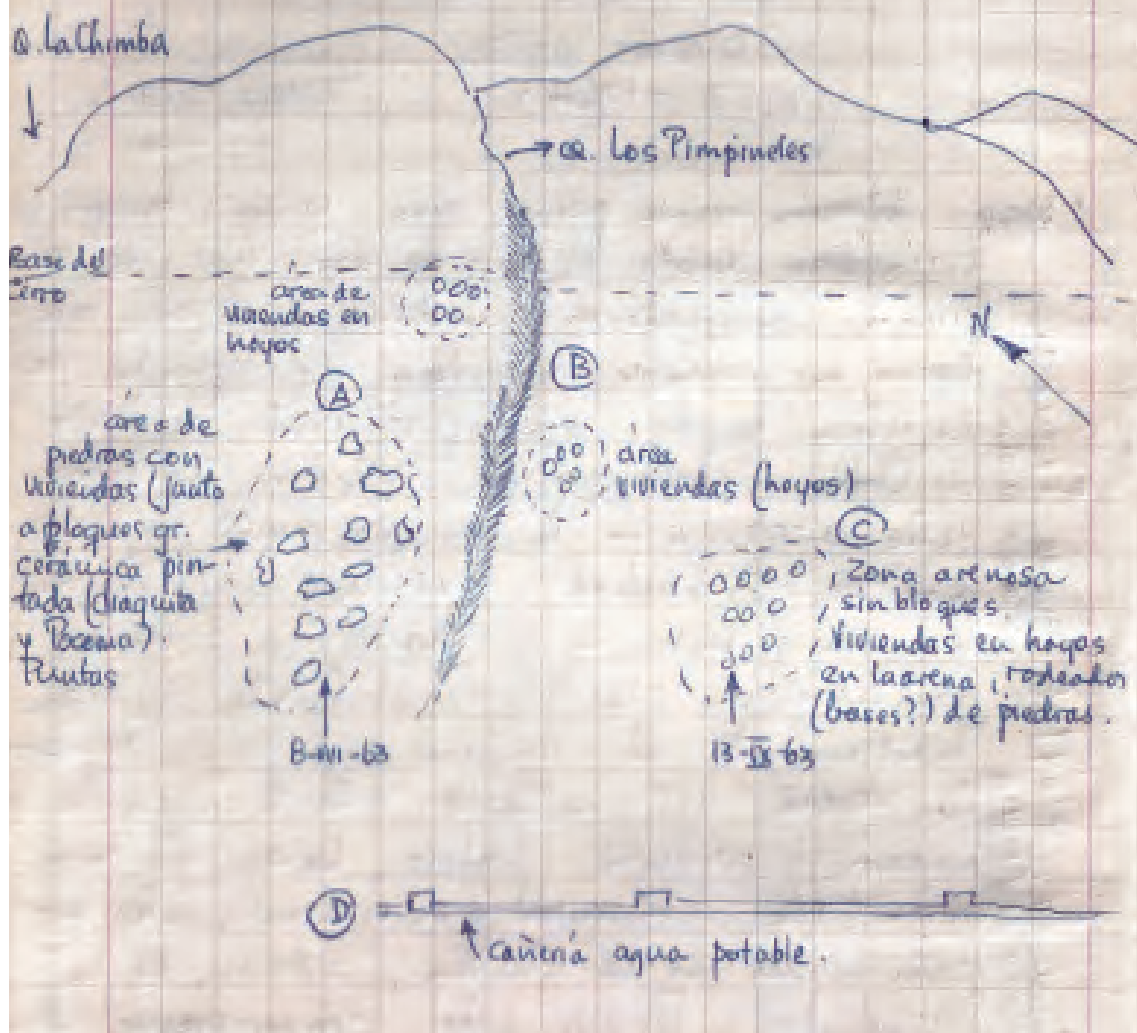 Q. La Chimba
Q. Los Pimpineles
Base del
cerro
área de
viviendas en
hoyos
N
B
A
área de
piedras con
viviendas (junto
a bloques gr.
cerámica pin-
tada (diaguita
y Pocoma).
Puntas
área
viviendas (hoyos)
C
Zona arenosa
sin bloques.
Viviendas en hoyos
en la arena, rodeados
(bases?) de piedras.
8-VII-63
13-IX-63
D
cañería agua potable.